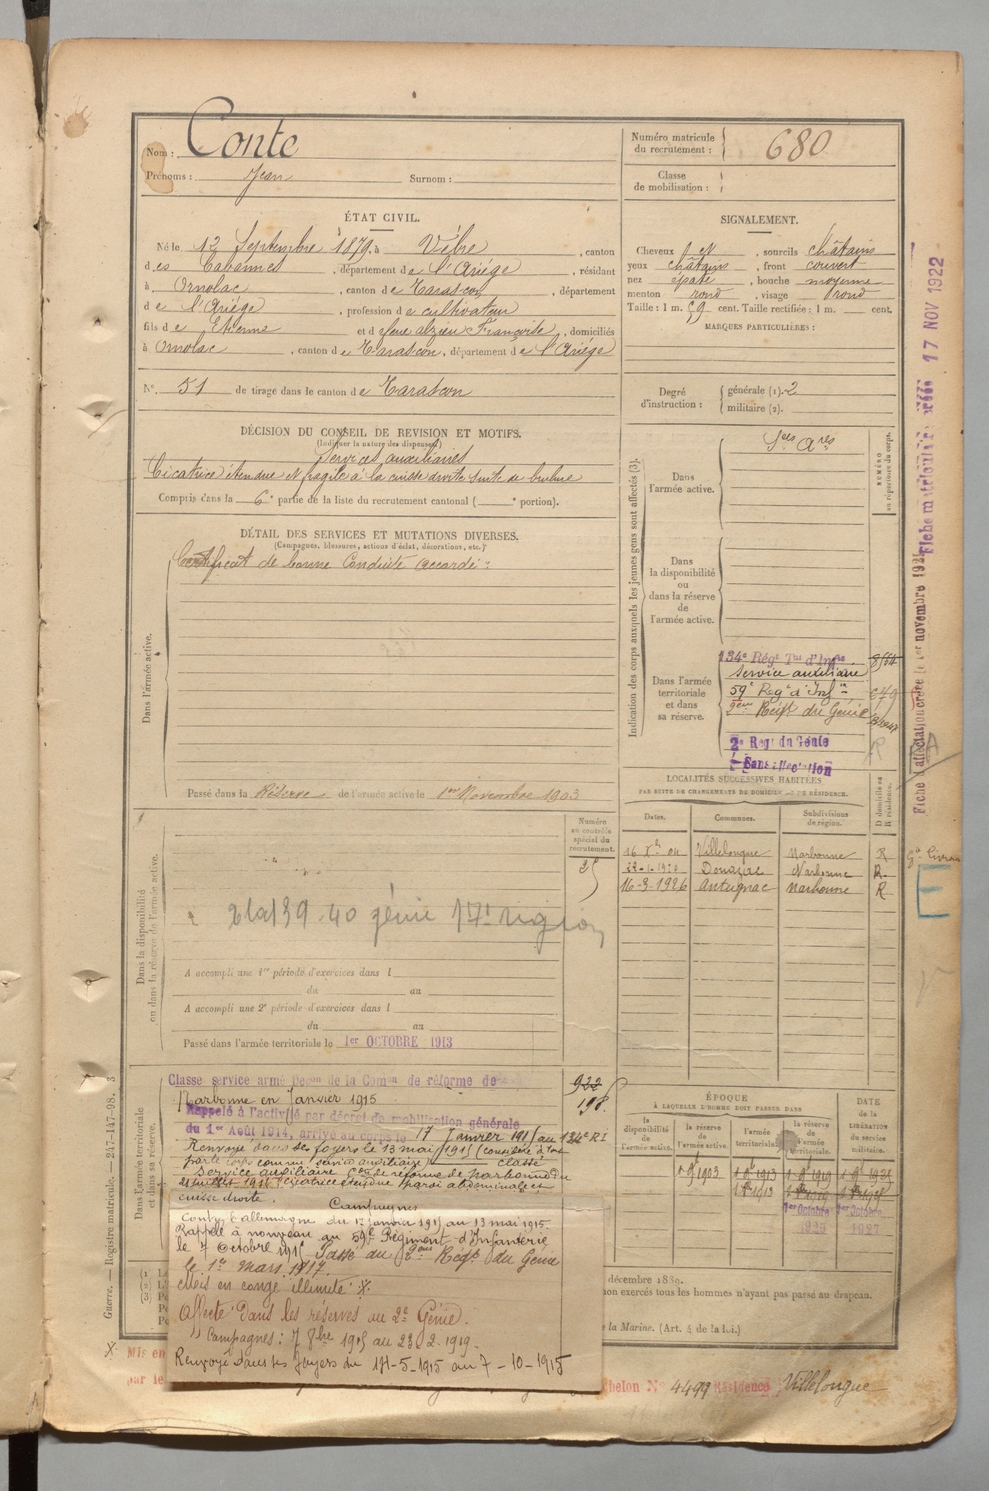 Nom : Conte
Prénoms : Jean Surnom :
Numéro matricule du recrutement : 680
Classe de mobilisation :
ÉTAT CIVIL.
Né le 12 Septembre 1879, à Vèbre, canton
des Cabannes, département de l'Ariége, résidant
à Ornolac, canton de Tarascon, département
de l'Ariége, profession de cultivateur
fils de Etienne et de Françoise, domiciliés
à Ornolac, canton de Tarascon, département de l'Ariége
N° 51 de tirage dans le canton de Tarascon
SIGNALEMENT.
Cheveux et, sourcils châtains
yeux châtains, front couvert
nez épaté, bouche moyenne
menton rond, visage rond
Taille : 1 m. 59 cent. Taille rectifiée : 1 m. cent.
MARQUES PARTICULIÈRES :
Degré d'instruction : générale (1). 2
militaire (2).
DÉCISION DU CONSEIL DE REVISION ET MOTIFS.
(Indiquer la nature des dispenses)
Services auxiliaires
Cicatrice étendue et fragile à la cuisse droite suite de brulure
Compris dans la 6e partie de la liste du recrutement cantonal ( e portion).
DÉTAIL DES SERVICES ET MUTATIONS DIVERSES.
(Campagnes, blessures, actions d'éclat, décorations, etc.)
Certificat de bonne Conduite accordé
Dans l'armée active.
Passé dans la Réserve de l'armée active le 1er Novembre 1903
Indication des corps auxquels les jeunes gens sont affectés (3).
NUMÉRO au répertoire du corps.
Dans l'armée active.
Ses Ares
Dans la disponibilité ou dans la réserve de l'armée active.
Dans l'armée territoriale et dans sa réserve.
134e Régt Tal d'Infie
Service auxiliaire
59e Regt d'Infie
2eme Régt du Génie
2e Regt du Génie
Sans affectation
Fiche matricule 17 NOV 1922
LOCALITÉS SUCCESSIVES HABITÉES
PAR SUITE DE CHANGEMENTS DE DOMICILE OU DE RÉSIDENCE.
Dates. Communes. Subdivisions de région. D domicile ou R résidence.
Villelongue Narbonne R
22-1-1920 Donazac Narbonne R
16-3-1926 Antugnac Narbonne R
Dans la disponibilité ou dans la réserve de l'armée active.
Numéro au contrôle spécial du recrutement.
25
génie 17e région
A accompli une 1re période d'exercices dans l
du au
A accompli une 2e période d'exercices dans l
du au
Passé dans l'armée territoriale le 1er OCTOBRE 1913
Dans l'armée territoriale et dans sa réserve.
922
198
Classe service armé Decon de la Comon de réforme de
Narbonne en Janvier 1915
Rappelé à l'activité par décret de mobilisation générale
du 1er Août 1914, arrivé au corps le 17 Janvier 1915 au 134e RI
Renvoyé dans ses foyers le 13 mai 1915
comme service auxiliaire classé
service auxiliaire de réforme de Narbonne du
cicatrice étendue paroi abdominale et
cuisse droite.
Campagnes
Contre l'allemagne du 17 janvier 1915 au 13 mai 1915
Rappelé à nouveau au 59e Régiment d'Infanterie
le 7 Octobre 1915 Passé au 2eme Régt du Génie
le 1er mars 1917.
Mis en congé illimité X
Affecté dans les réserves au 2e Génie.
Campagnes : 7 8bre 1915 au 23 2.1919.
Renvoyé dans ses foyers du 14-5-1915 au 7-10-1915
ÉPOQUE
À LAQUELLE L'HOMME DOIT PASSER DANS
DATE de la LIBÉRATION du service militaire.
la disponibilité de l'armée active. la réserve de l'armée active. l'armée territoriale. la réserve de l'armée territoriale.
1er Octobre 1er Octobre
1927
décembre 1889.
non exercés tous les hommes n'ayant pas passé au drapeau.
la Marine. (Art. 4 de la loi.)
Guerre. — Registre matricule. — 247-147-98. 3
X Mis en
par le
Échelon N° 4499 Résidence : Villelongue